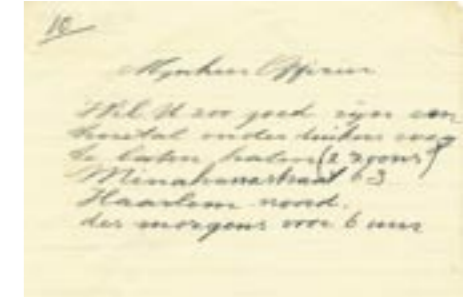 10
Mijnheer Officier
Wil U zoo goed zijn een
tweetal onderduikers weg
te laten halen (2 zoons)
Minahassastraat 63
Haarlem noord.
des morgens voor 6 uur